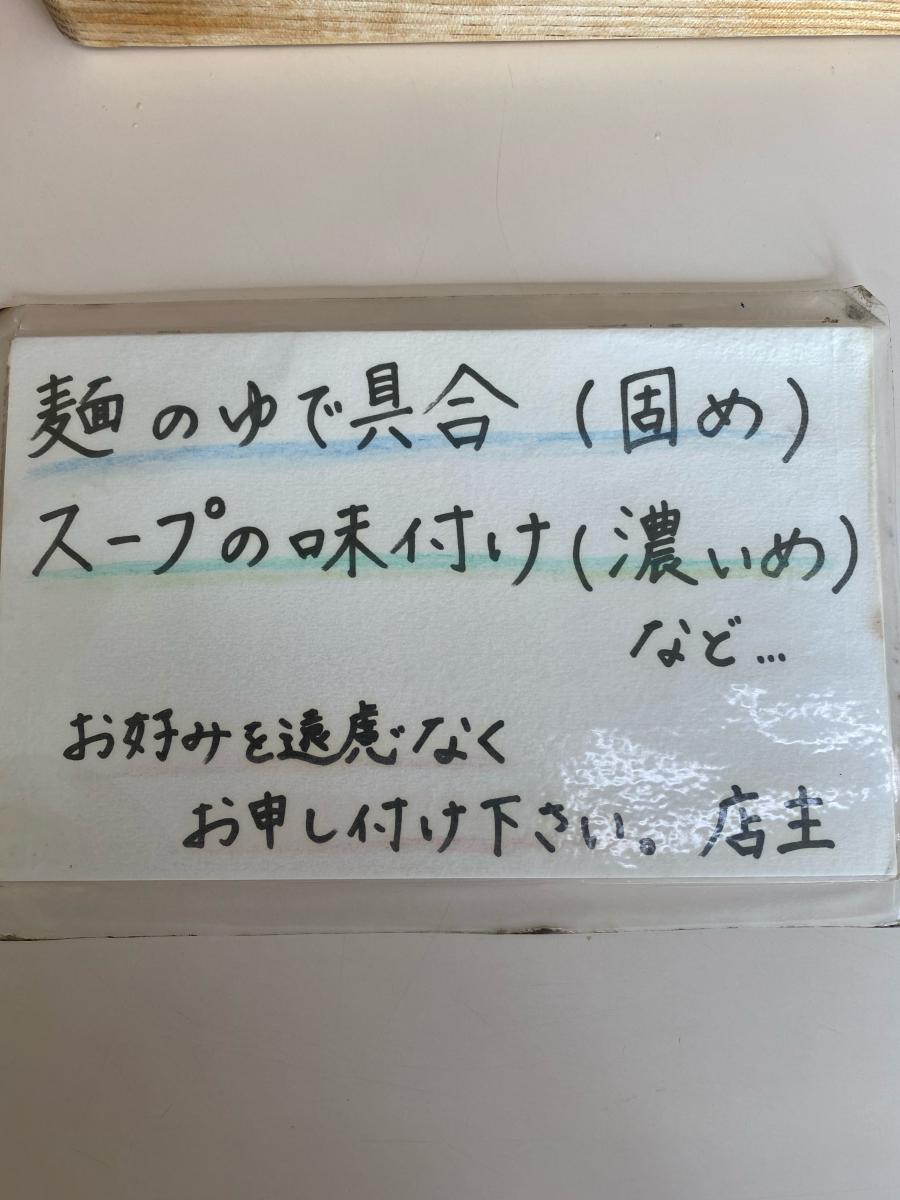 麺のゆで具合(固め)
スープの味付け(濃いめ)
など…
お好みを遠慮なく
お申し付け下さい。店主